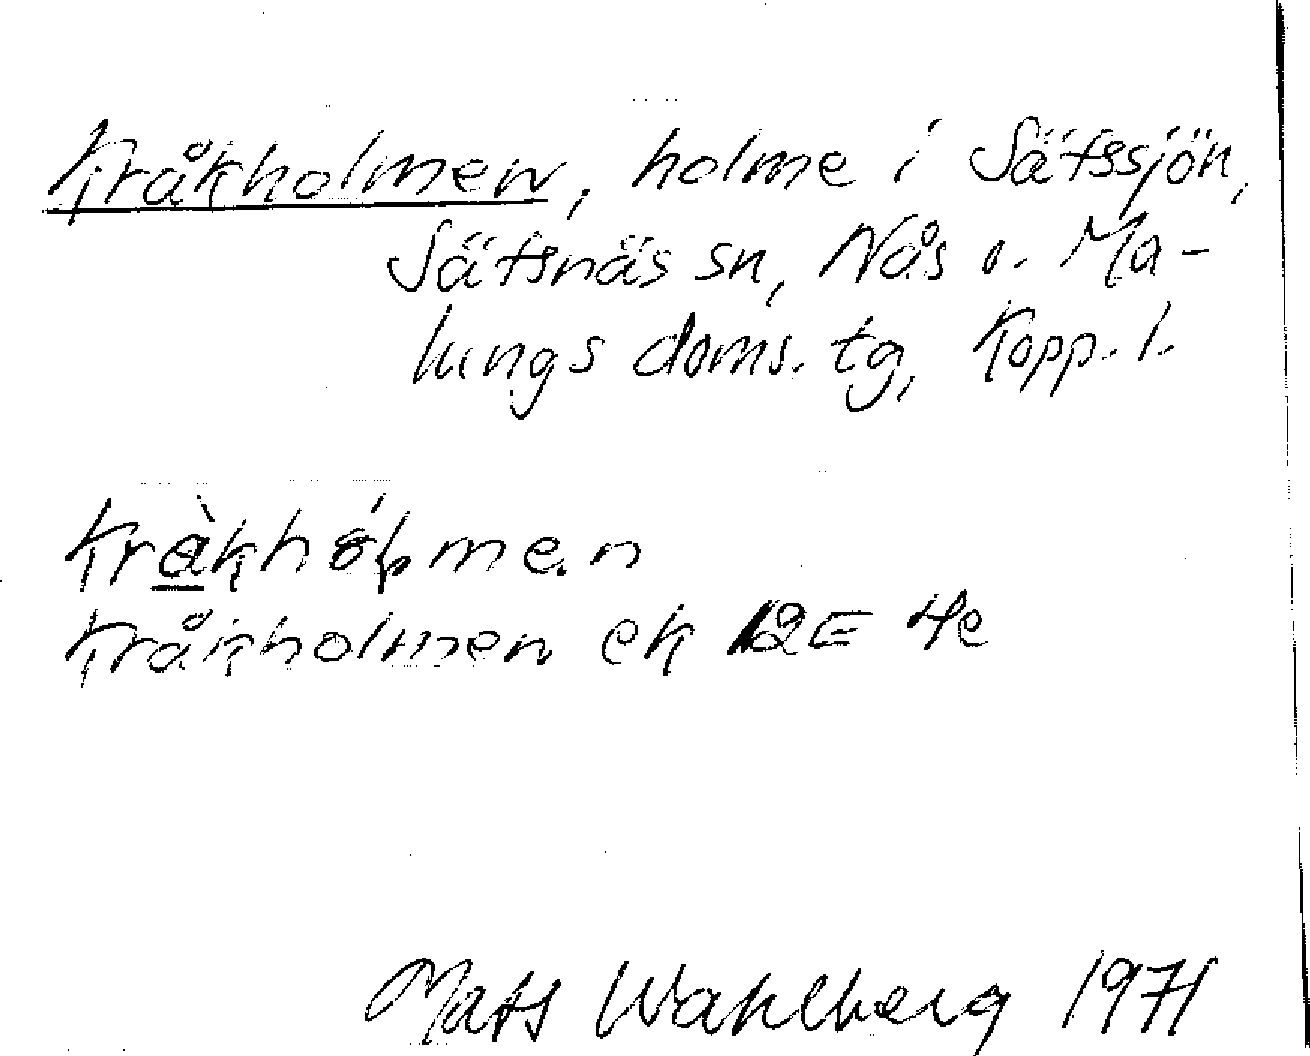 Kråkholmen, holme i Sätssjön,
Sätsnäs sn, Nås o. Ma-
lungs doms. tg, Kopp. l.
me.n
Kråkholmen ek 12E 4e
Mats Wahlberg 1971